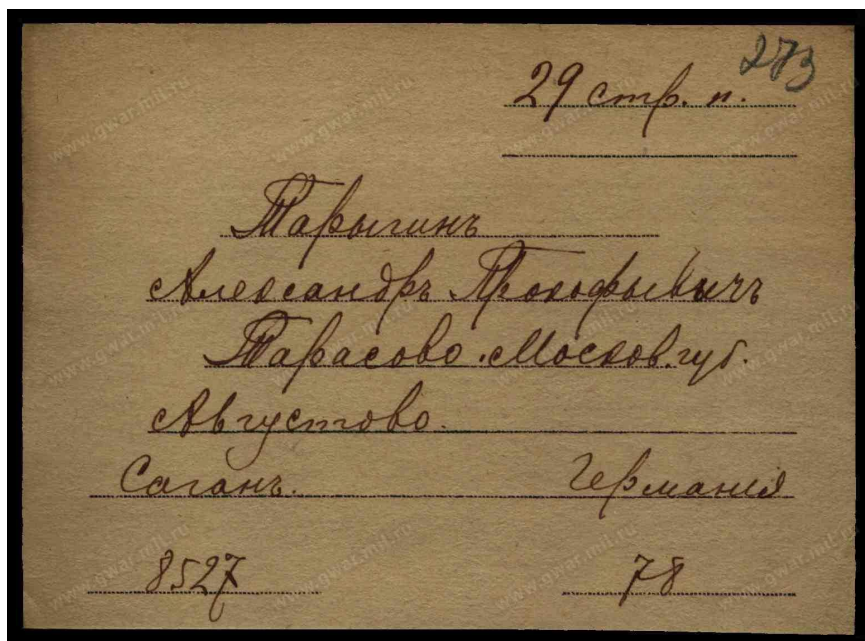 273
29 стр. п.
Тарыгинъ
Александръ Прокофьевичъ
Тарасово. Москов. губ.
Августово.
Саганъ. Германія
8527 78
www.gwar.mil.ru